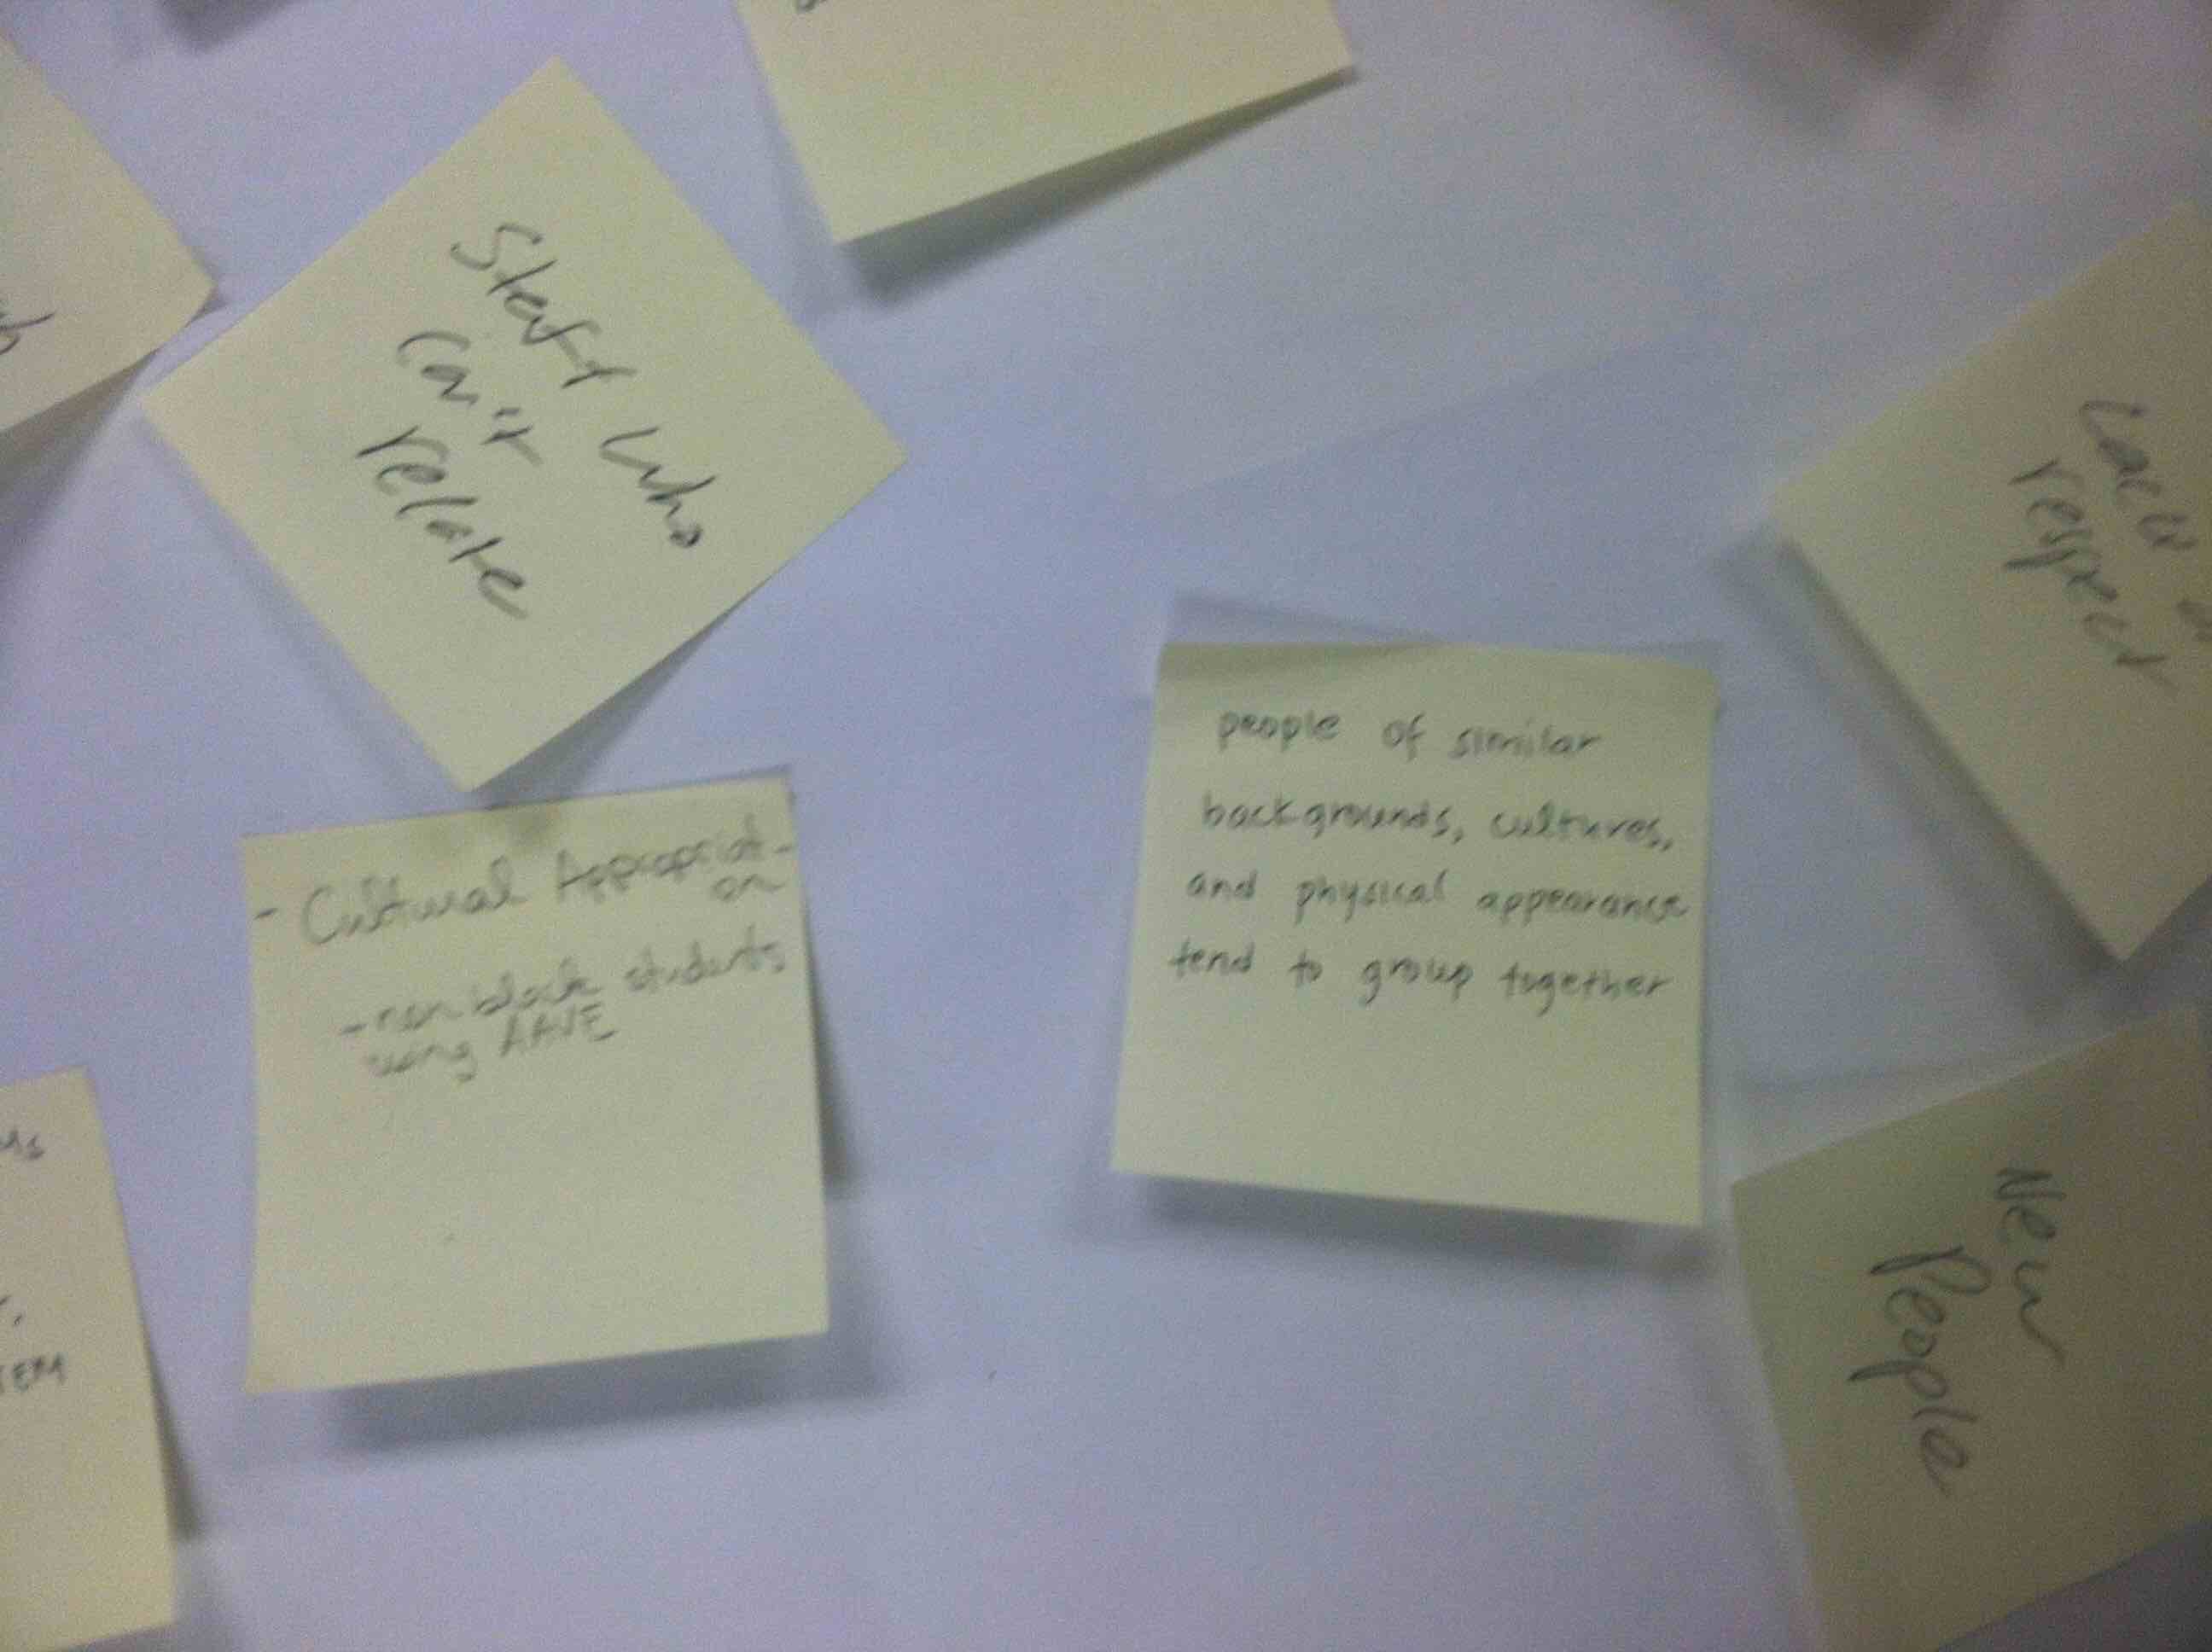 Staff who
can't
relate
- Cultural Appropriat-
on
- non black students
using AAVE
people of similar
backgrounds, cultures,
and physical appearance
tend to group together
Lack
respect
New
People